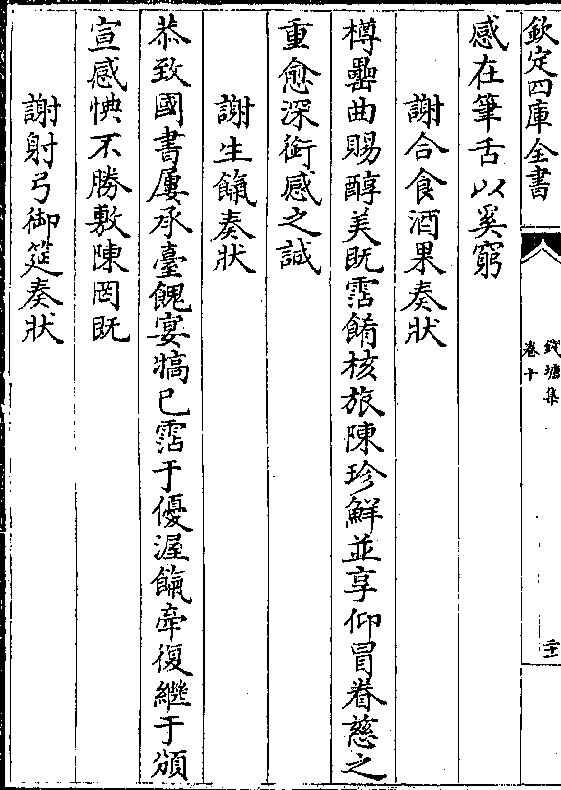 欽定四庫全書
錢塘集
卷十
感在筆舌以奚窮
謝合食酒果奏狀
樽罍曲賜醇美既霑餚核旅陳珍鮮並享仰冒眷慈之
重愈深銜感之誠
謝生餼奏狀
恭致國書屢承臺餽宴犒已霑于優渥餼牽復繼于頒
宣感怏不勝敷陳罔既
謝射弓御筵奏狀